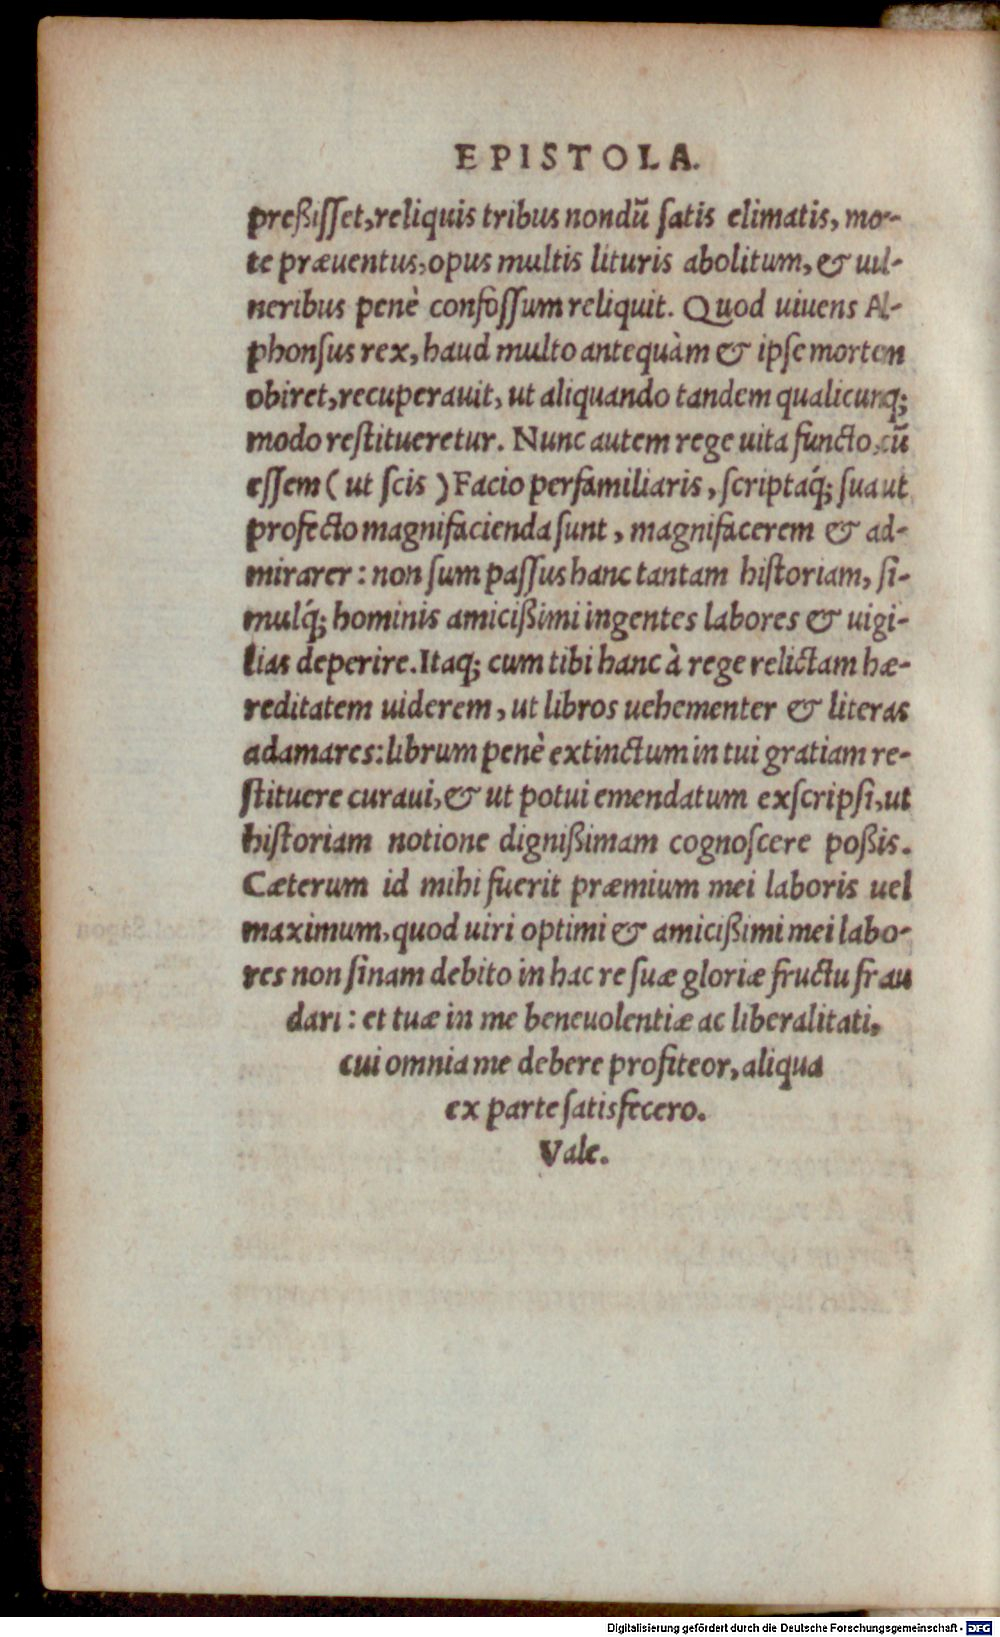 EPISTOLA.
preßiſſet, reliquis tribus nondũ ſatis elimatis, mor-
te præuentus, opus multis lituris abolitum, & uul-
neribus penè confoſſum reliquit. Quod uiuens Al-
phonſus rex, haud multo antequàm & ipſe mortem
obiret, recuperauit, ut aliquando tandem qualicunq;
modo reſtitueretur. Nunc autem rege uita functo, cũ
eſſem (ut ſcis) Facio perfamiliaris, ſcriptaq́; ſua ut
profecto magnifacienda ſunt, magnifacerem & ad-
mirarer: non ſum paſſus hanc tantam hiſtoriam, ſi-
mulq́; hominis amicißimi ingentes labores & uigi-
lias deperire. Itaq; cum tibi hanc à rege relictam hæ-
reditatem uiderem, ut libros uehementer & literas
adamares: librum penè extinctum in tui gratiam re-
ſtituere curaui, & ut potui emendatum exſcripſi, ut
hiſtoriam notione dignißimam cognoſcere poßis.
Cæterum id mihi fuerit præmium mei laboris uel
maximum, quod uiri optimi & amicißimi mei labo-
res non ſinam debito in hac re ſuæ gloriæ fructu frau
dari: et tuæ in me beneuolentiæ ac liberalitati,
cui omnia me debere profiteor, aliqua
ex parte ſatisfecero.
Vale.
Digitalisierung gefördert durch die Deutsche Forschungsgemeinschaft - DFG